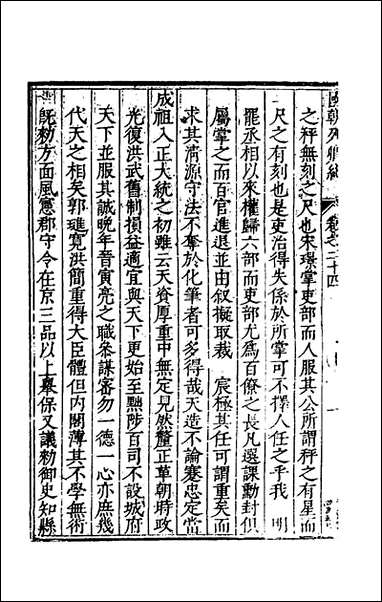 國朝列卿紀 卷之二十四 一
之秤無刻之尺也宋璟掌吏部而人服其公所謂秤之有星而
尺之有刻也是吏治得失係於所掌可不擇人任之乎我 明
罷丞相以來權歸六部而吏部尤為百僚之長凡選課勳封俱
屬掌之而百官進退並由叙擬取裁 宸極其任可謂重矣而
求其清源守法不奪於化筆者可多得哉天造不論蹇忠定當
成祖入正大統之初雖云天資厚重中無定見然釐正革朝時政
光復洪武舊制損益適宜與天下更始至黜陟百司不設城府
天下並服其誠晚年晉寅亮之職參謀審勿一德一心亦庶幾
代天之相矣郭璡寬洪簡重得大臣體但內閣薄其不學無術
既勑方面風憲郡守令在京三品以上舉保又議勑御史知縣